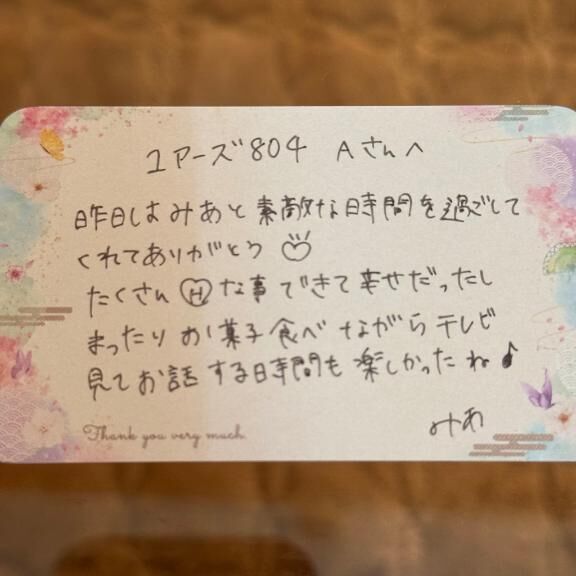 ユアーズ804 Aさんへ
昨日はみあと素敵な時間を過ごして
くれてありがとう♡
たくさんHな事できて幸せだったし
まったりお菓子食べながらテレビ
見てお話する時間も楽しかったね♪
みあ
Thank you very much